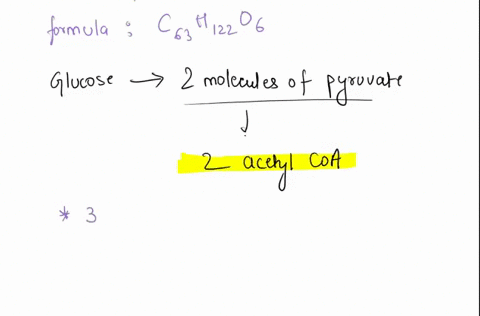 formula : C₆₃H₁₂₂O₆
Glucose → 2 molecules of pyruvate
↓
2 acetyl CoA
* 3